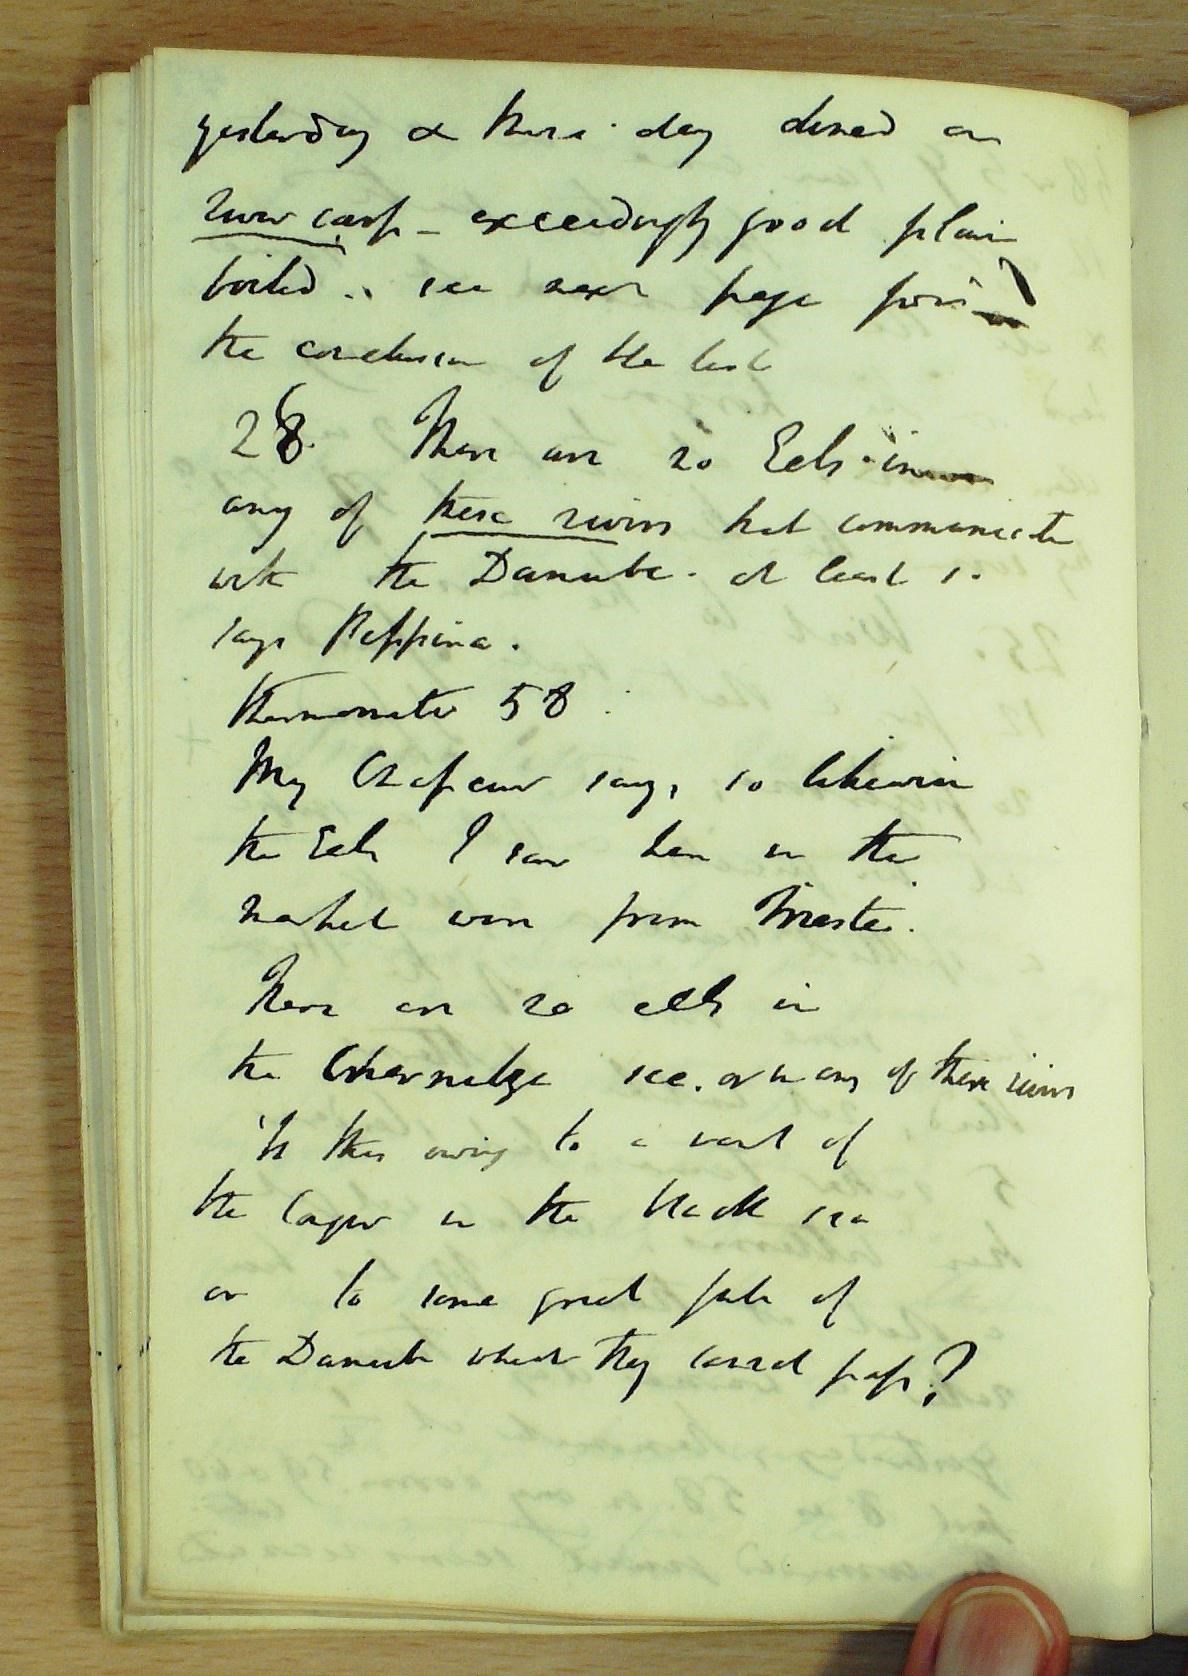 yesterday & thursday dined on
river carp - exceedingly good plain
boiled .. see next page for
the conclusion of the last
28. There are no Eels in
any of these rivers that communicate
with the Danube. at least so
says Peppina.
thermometer 58
My Chasseur says so likewise
the Eels I saw here in the
market were from Trieste.
There are no eels in
the see. or in any of these rivers
Is this owing to a want of
the in the black sea
or to some great falls of
the Danube which they cannot pass?